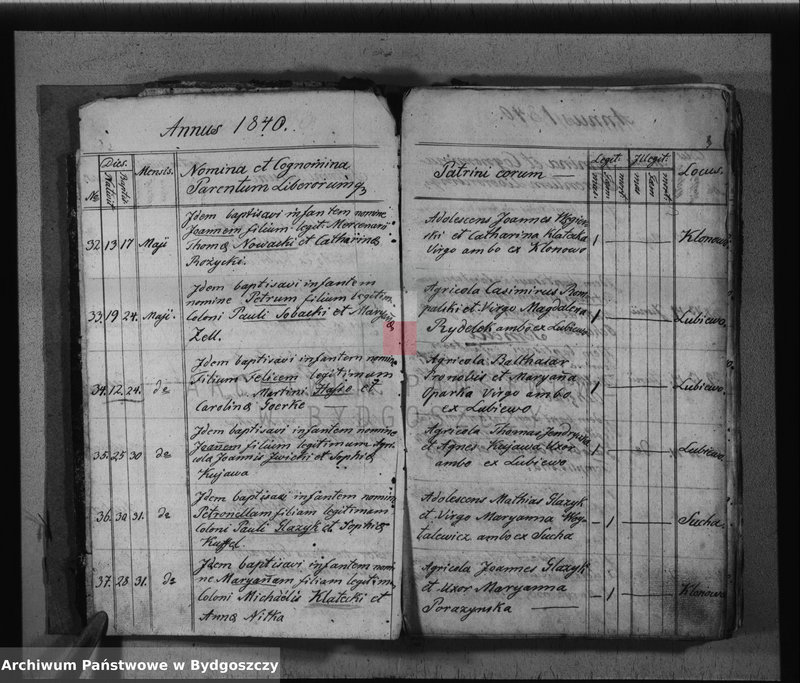 Annus 1840.
Dies.
Nomina et Cognomina
Parentum Liberorumq
No
Natvit
Baptis
Mensis.
32. 13 17 Maji
Idem baptisavi infantem nomine
Joannem filium legit: Mercenarii
Thomæ Nowacki et Catharinæ
Rożycki.
33. 19 24. Maji.
Idem baptisavi infantem
nomine Petrum filium legitim
Coloni Pauli Sobacki et Maryañ
Zell.
34. 12. 24. de
Idem baptisavi infantem nomine
filium Felicem legitimum
Martini Hasse et
Carolinæ Goerke
35. 25 30 de
Idem baptisavi infantem nomine
Joañem filium legitimum Agri
cola Joannis Jwicki et Sophiæ
Kujawa
36. 30 31. de
Idem baptisavi infantem nomin
Petronellam filiam legitimam
Coloni Pauli Glazyk et Sophiæ
Kuffel.
37. 28 31. de
Idem baptisavi infantem nomi
ne Maryañam filiam legitim
Coloni Michaelis Klatecki et
Annæ Nitka
3
Patrini eorum
Legit:
Illegit:
Locus.
Adolescens Joannes
ski et Catharina Klatecka
Virgo ambo ex Klonowo
1
Klonowo
Agricola Casimirus Pam
palski et Virgo Magdalena
Rydelek ambo ex Lubiewo
1
Lubiewo.
Agricola Balthasar
Pronobis et Maryaña
Oparka Virgo ambo
ex Lubiewo
1
Lubiewo.
Agricola Thomas
et Agnes Kujawa Uxor
ambo ex Lubiewo
1
Lubiewo.
Adolescens Mathias Glazyk
et Virgo Maryanna Woy
talewicz ambo ex Sucha
1
Sucha.
Agricola Joannes Glazyk
et Uxor Maryanna
Porazynska
1
Klonowo
BYDGOS
Archiwum Państwowe w Bydgoszczy